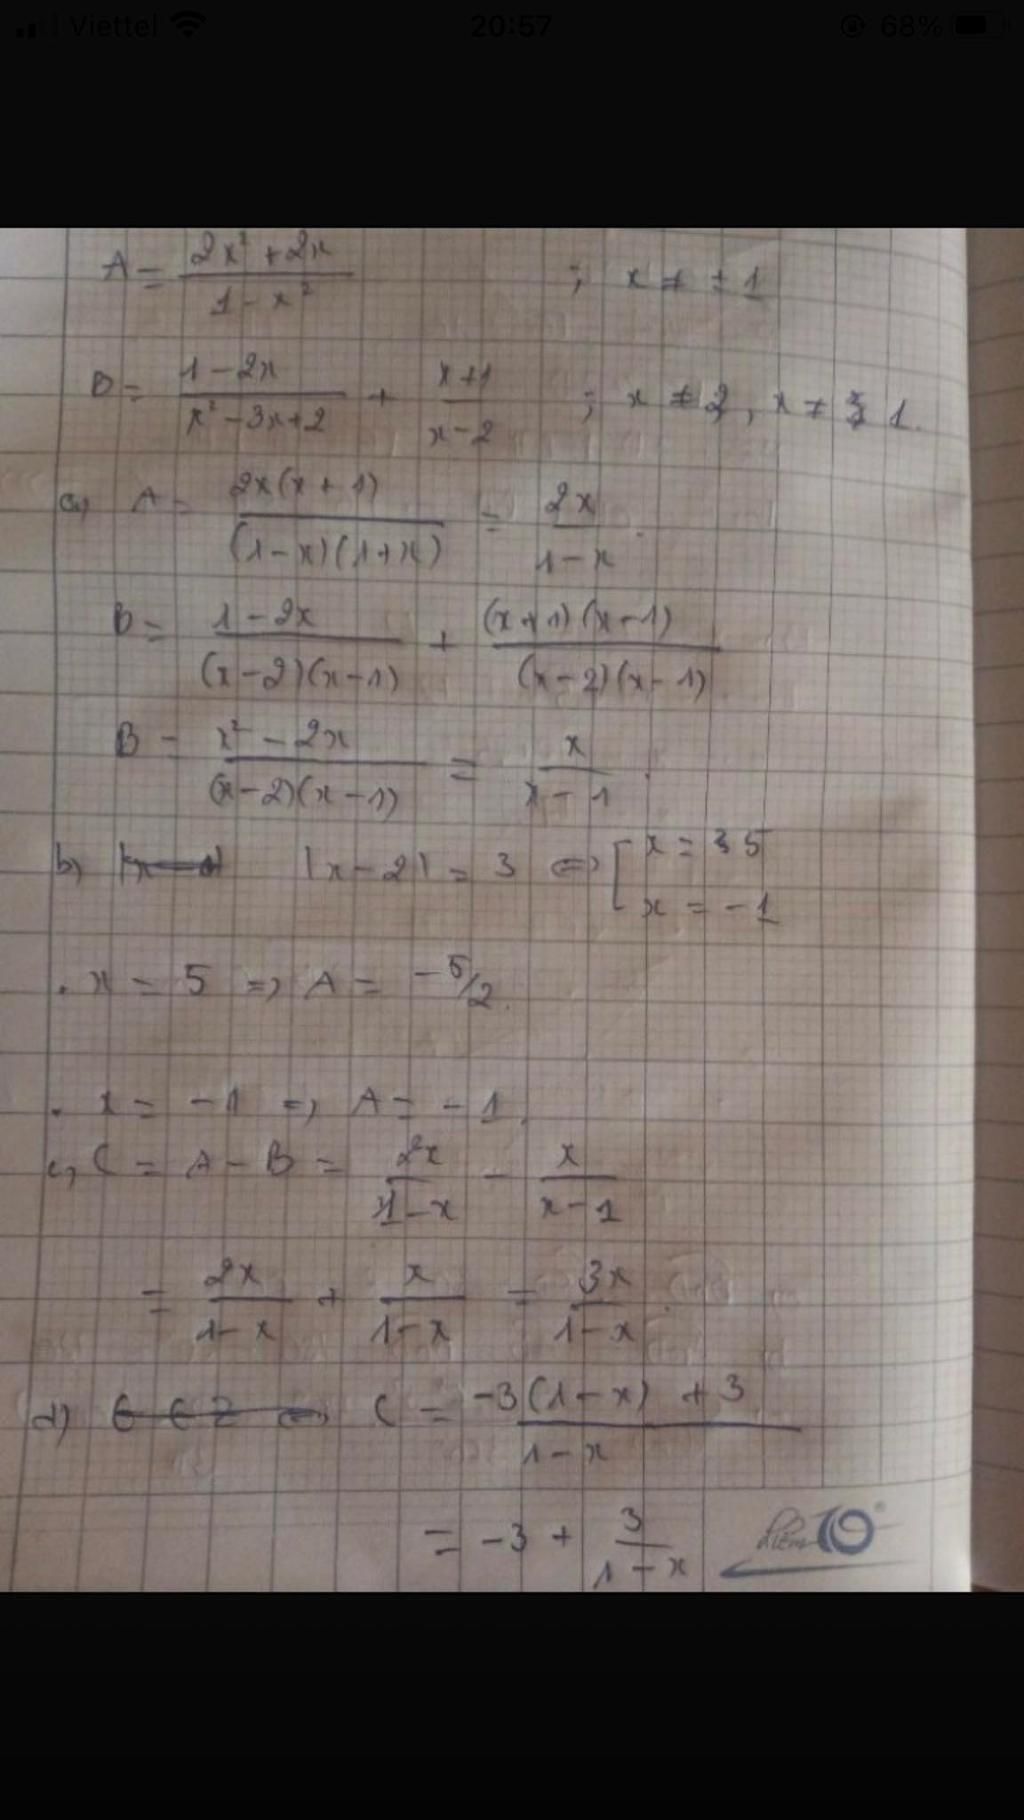 Viettel 20:57 68%
A = \frac{2x^2 + 2x}{1 - x^2} ; x ≠ ± 1
B = \frac{1 - 2x}{x^2 - 3x + 2} + \frac{x + 1}{x - 2} ; x ≠ 2, x ≠ 1.
a, A = \frac{2x(x + 1)}{(1 - x)(1 + x)} = \frac{2x}{1 - x}.
B = \frac{1 - 2x}{(x - 2)(x - 1)} + \frac{(x + 1)(x - 1)}{(x - 2)(x - 1)}
B = \frac{x^2 - 2x}{(x - 2)(x - 1)} = \frac{x}{x - 1}.
b, |x - 2| = 3 ⇔ [ x = 5
x = -1
. x = 5 => A = -5/2.
. x = -1 => A = -1.
c, C = A - B = \frac{2x}{1 - x} - \frac{x}{x - 1}
= \frac{2x}{1 - x} + \frac{x}{1 - x} = \frac{3x}{1 - x}.
d) C = \frac{-3(1 - x) + 3}{1 - x}
= -3 + \frac{3}{1 - x}
Điểm 10